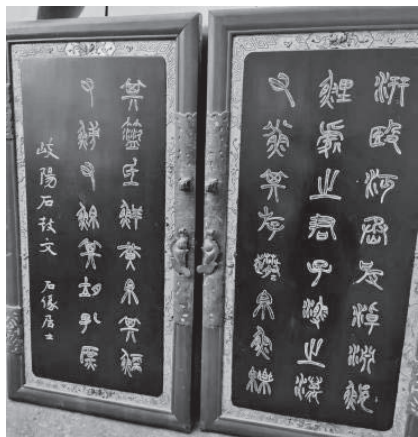 汧殹沔丞皮淖淵鰋
鯉處之君子漁之澫
又其斿散帛魚
其氐鮮黃帛其
又又其孔庶
岐陽石鼓文 石居士